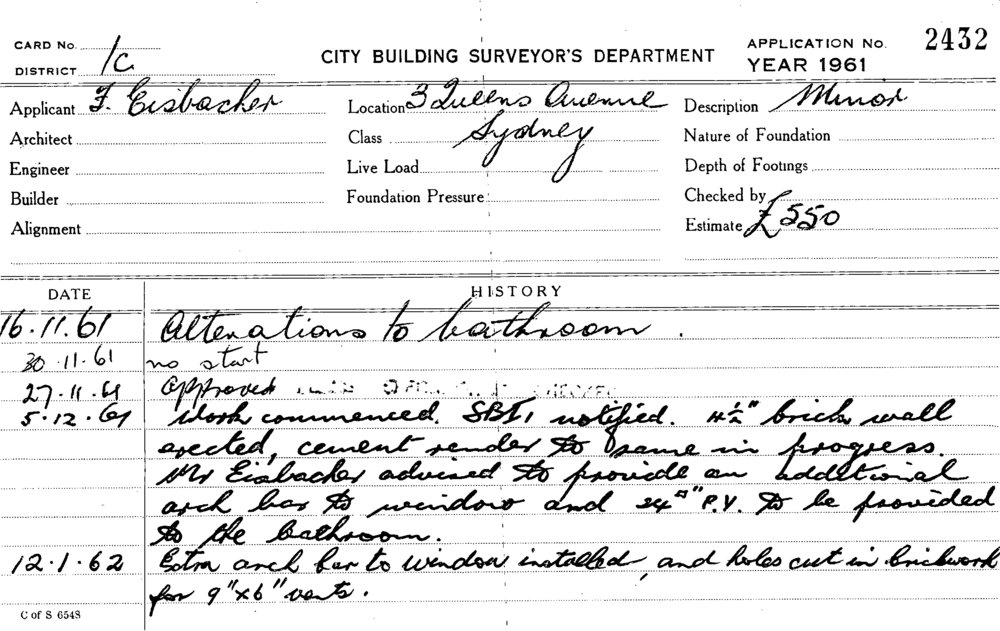 CARD No. 1c
DISTRICT
CITY BUILDING SURVEYOR'S DEPARTMENT
APPLICATION No. 2432
YEAR 1961
Applicant F. Eisbacher Location 3 Queens Avenue Description Minor
Architect Class Sydney Nature of Foundation
Engineer Live Load Depth of Footings
Builder Foundation Pressure Checked by
Alignment Estimate £550
DATE HISTORY
16.11.61 Alterations to bathroom.
30.11.61 no start
27.11.61 Approved
5.12.61 Work commenced. SBI, notified. 4½" brick wall
erected, cement render to same in progress.
Mr Eisbacher advised to provide an additional
arch bar to window and 24▫" P.V. to be provided
to the bathroom.
12.1.62 Extra arch bar to window installed, and holes cut in brickwork
for 9"x6" vents.
C of S 6548